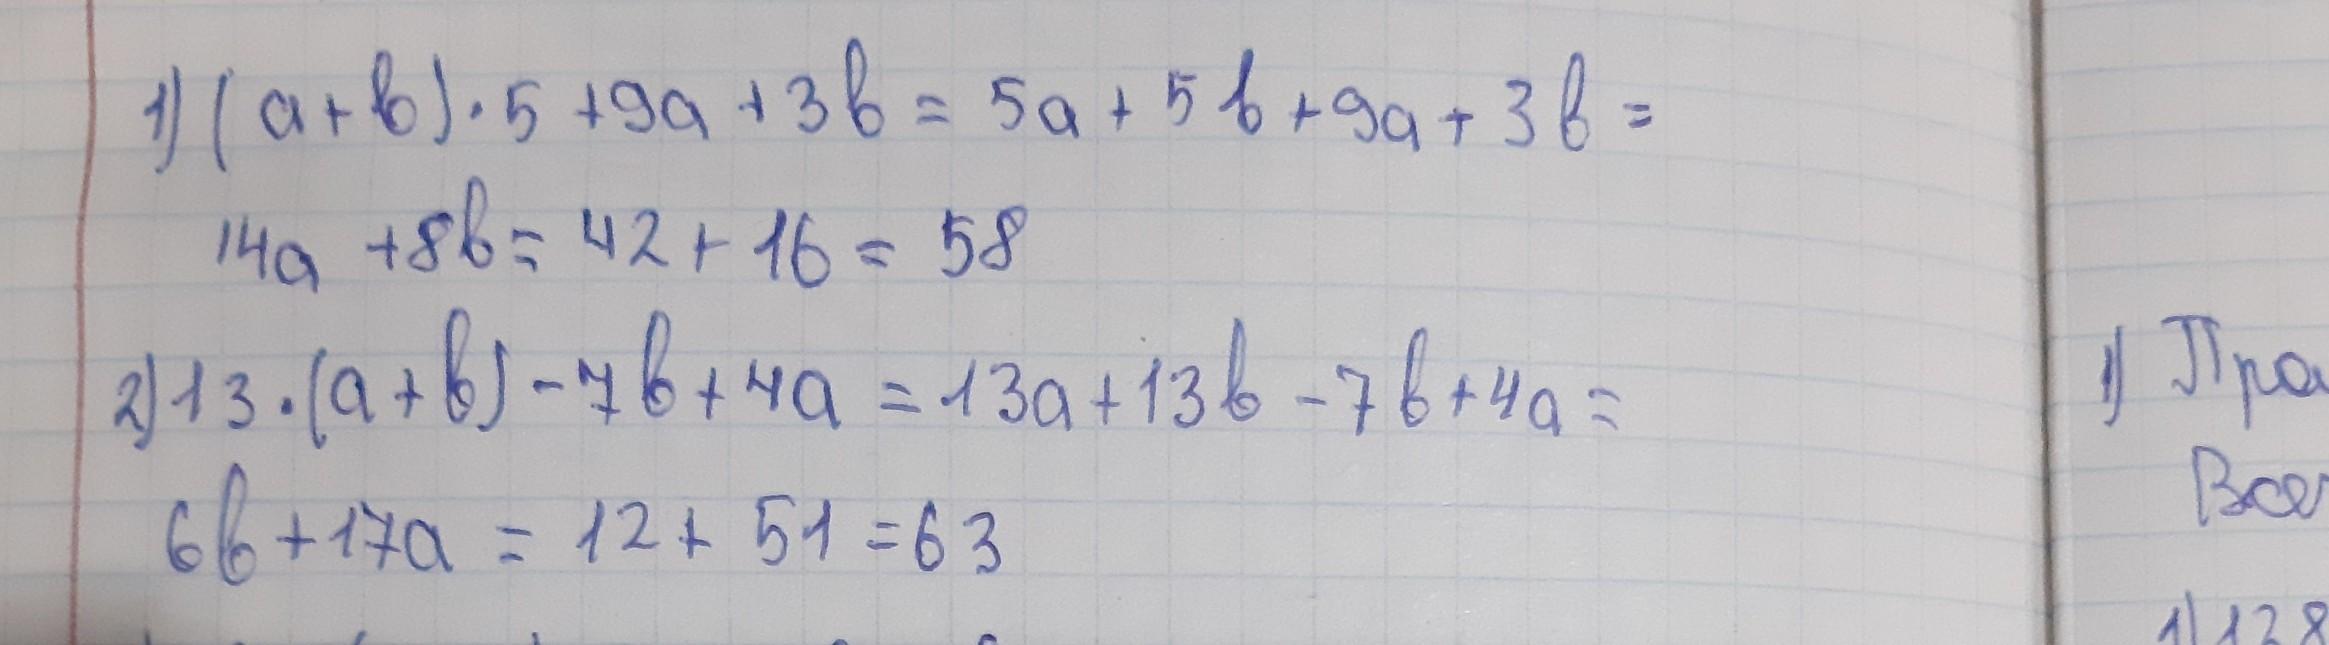 1) (a+b)·5+9a+3b=5a+5b+9a+3b=
14a+8b=42+16=58
2) 13·(a+b)-7b+4a=13a+13b-7b+4a=
6b+17a=12+51=63
1) Пра
Все
1) 128